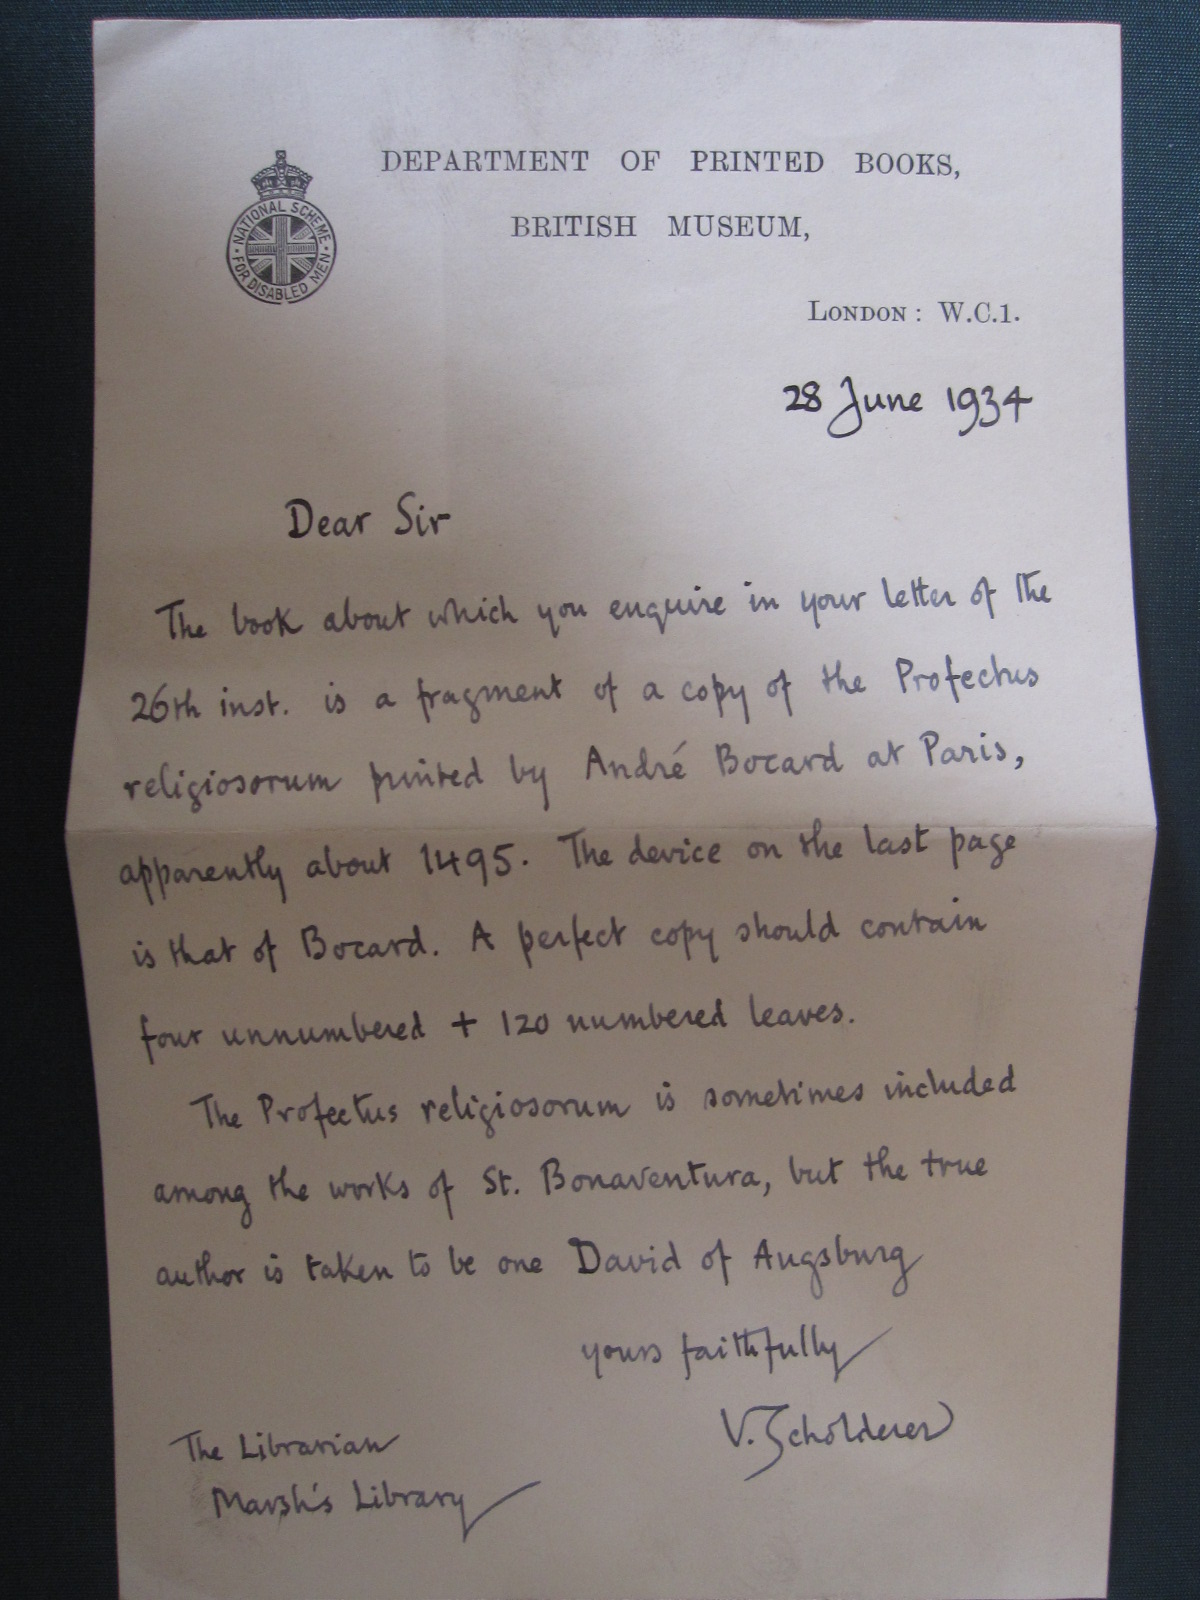 NATIONAL SCHEME
FOR DISABLED MEN
DEPARTMENT OF PRINTED BOOKS,
BRITISH MUSEUM,
LONDON: W.C.1.
28 June 1934
Dear Sir
The book about which you enquire in your letter of the
26th inst. is a fragment of a copy of the Profectus
religiosorum printed by André Bocard at Paris,
apparently about 1495. The device on the last page
is that of Bocard. A perfect copy should contain
four unnumbered + 120 numbered leaves.
The Profectus religiosorum is sometimes included
among the works of St. Bonaventura, but the true
author is taken to be one David of Augsburg
yours faithfully
V. Scholderer
The Librarian
Marsh's Library